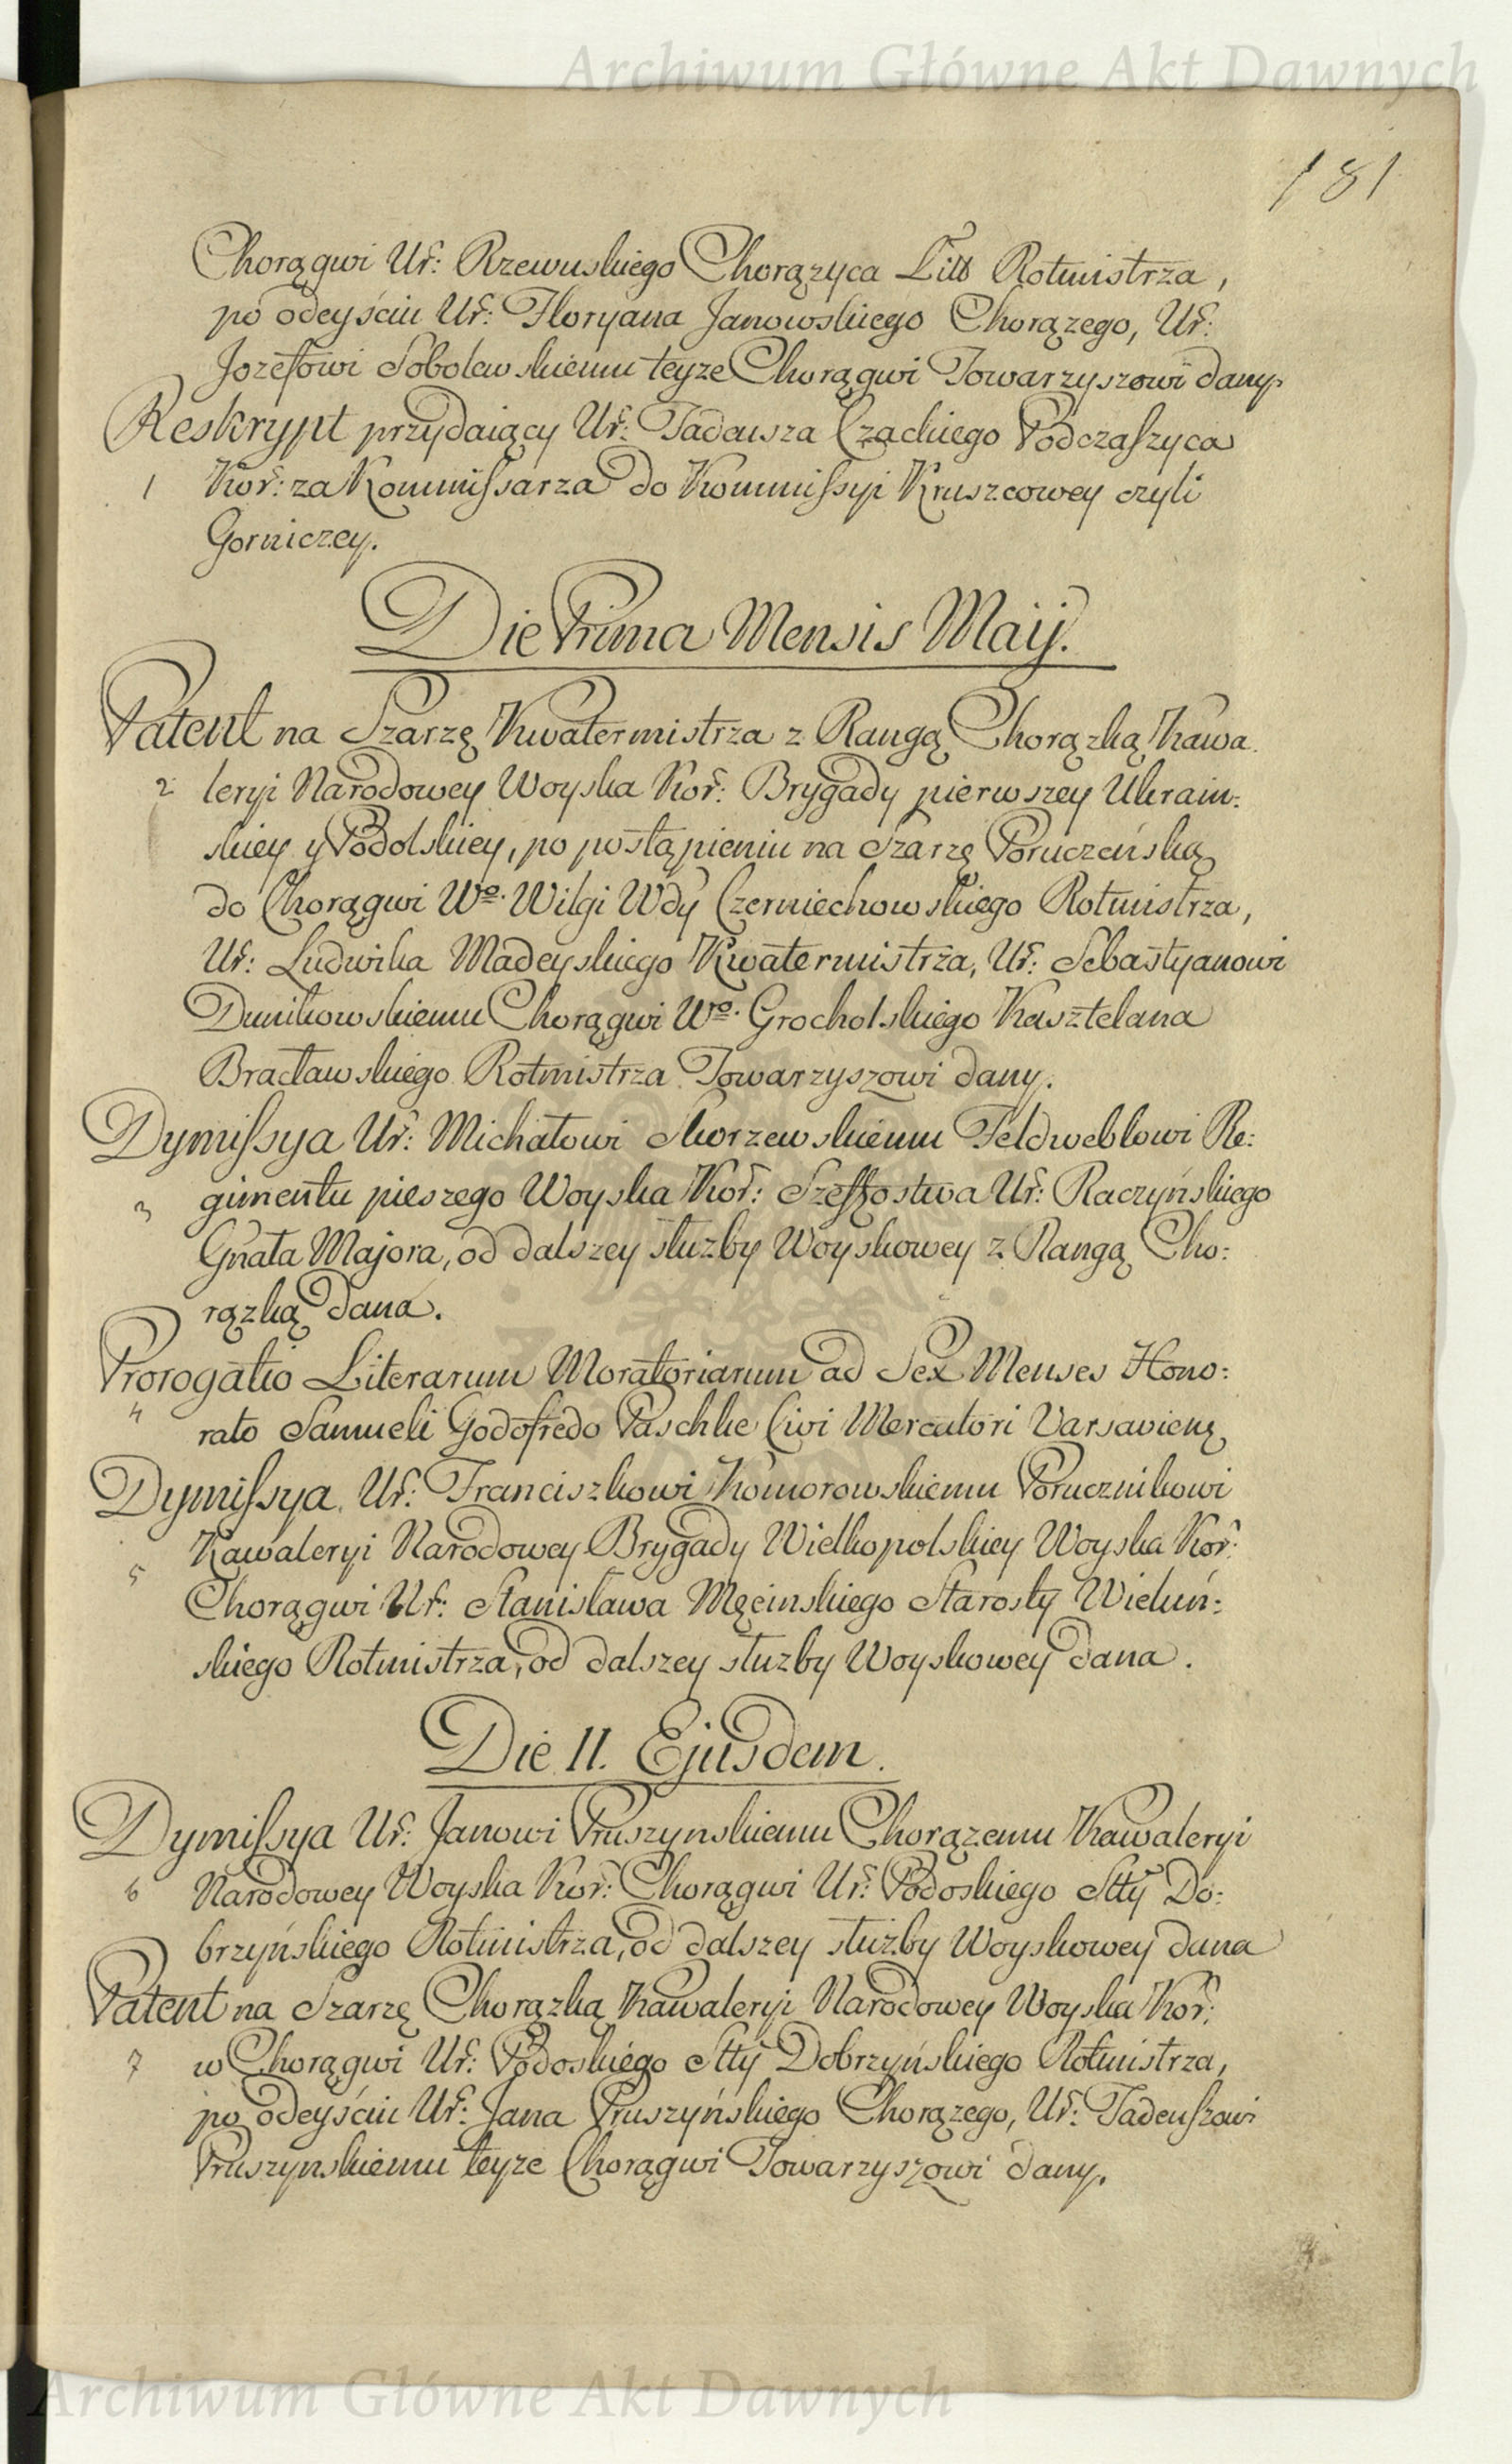 Archiwum Główne Akt Dawnych
181
Chorągwi Ur: Rzewuskiego Chorązyca Litt Rotmistrza,
po odeyściu Ur: Floryana Janowskiego Chorązego, Ur:
Jozefowi Sobolewskiemu teyze Chorągwi Towarzyszowi dany.
Reskrypt przydaiący Ur: Tadeusza Czackiego Podczaszyca
1 Kor: za Kommissarza do Kommissyi Kruszcowey czyli
Gorniczey.
Die Prima Mensis Maij.
Patent na Szarzę Kwatermistrza z Rangą Chorązką Kawa
2 leryi Narodowey Woyska Kor: Brygady pierwszey Ukrain:
skiey y Podolskiey, po postąpieniu na Szarzę Poruczeńską
do Chorągwi Wo. Wilgi Wdy Czerniechowskiego Rotmistrza,
Ur: Ludwika Madeyskiego Kwatermistrza, Ur: Sebastyanowi
Dunikowskiemu Chorągwi Wo. Grocholskiego Kasztelana
Bracławskiego Rotmistrza Towarzyszowi dany.
Dymissya Ur: Michałowi Skorzewskiemu Feldweblowi Re:
3 gimentu pieszego Woyska Kor: Szeffostwa Ur: Raczyńskiego
Gnała Majora, od dalszey słuzby Woyskowey z Rangą Cho:
rązką dana.
Prorogatio Literarum Moratoriarum ad Sex Menses Hono:
4 rato Samueli Godofredo Paschke Civi Mercatori Varsavienę
Dymissya Ur: Franciszkowi Komorowskiemu Porucznikowi
5 Kawaleryi Narodowey Brygady Wielkopolskiey Woyska Kor:
Chorągwi Ur: Stanisława Męcinskiego Starosty Wieluń:
skiego Rotmistrza, od dalszey słuzby Woyskowey dana.
Die II. Ejusdem.
Dymissya Ur: Janowi Pruszynskiemu Chorązemu Kawaleryi
6 Narodowey Woyska Kor: Chorągwi Ur: Podoskiego Stty Do:
brzyńskiego Rotmistrza, od dalszey słuzby Woyskowey dana
Patent na Szarzę Chorązką Kawaleryi Narodowey Woyska Kor:
7 w Chorągwi Ur: Podoskiego Stty Dobrzyńskiego Rotmistrza,
po odeyściu Ur: Jana Pruszyńskiego Chorązego, Ur: Tadeuszowi
Pruszynskiemu teyze Chorągwi Towarzyszowi dany.
Archiwum Główne Akt Dawnych